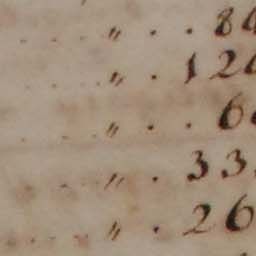 . . . . 〃 . . 8
. . . 〃 . 12
. . . 〃 . . 6
. . . 〃 . 33.
. . . 〃 . 26